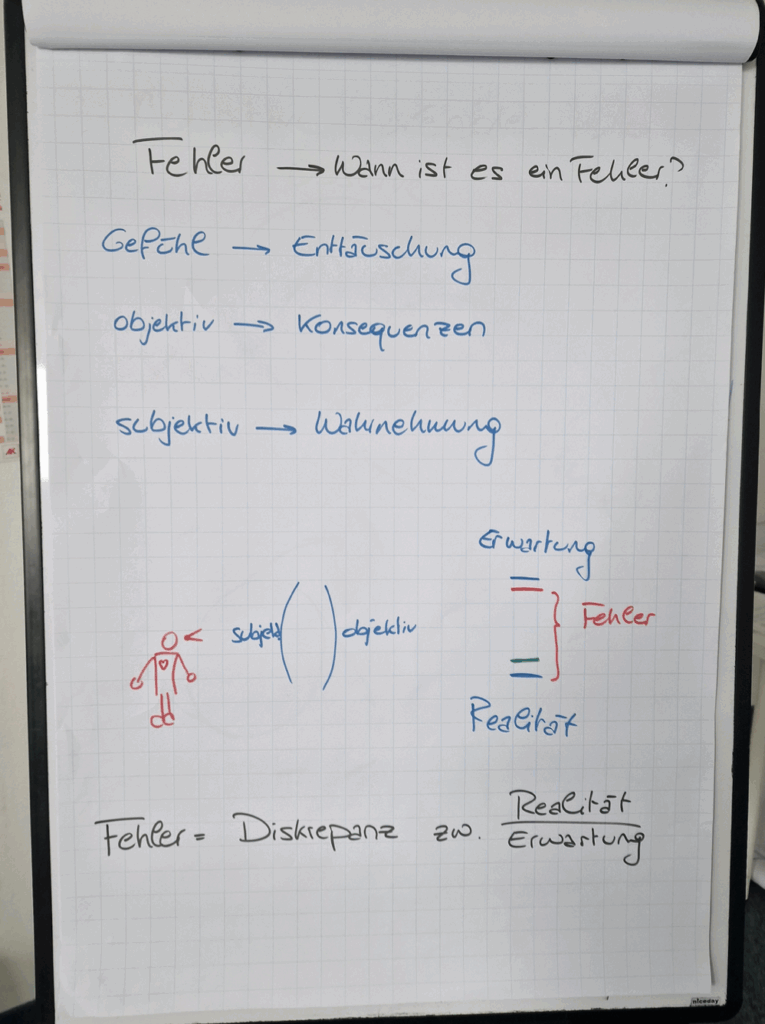 Fehler → Wann ist es ein Fehler?
Gefühl → Enttäuschung
objektiv → Konsequenzen
subjektiv → Wahrnehmung
Erwartung
Fehler
subjekt
objektiv
Realität
Fehler = Diskrepanz zw. Realität
Erwartung